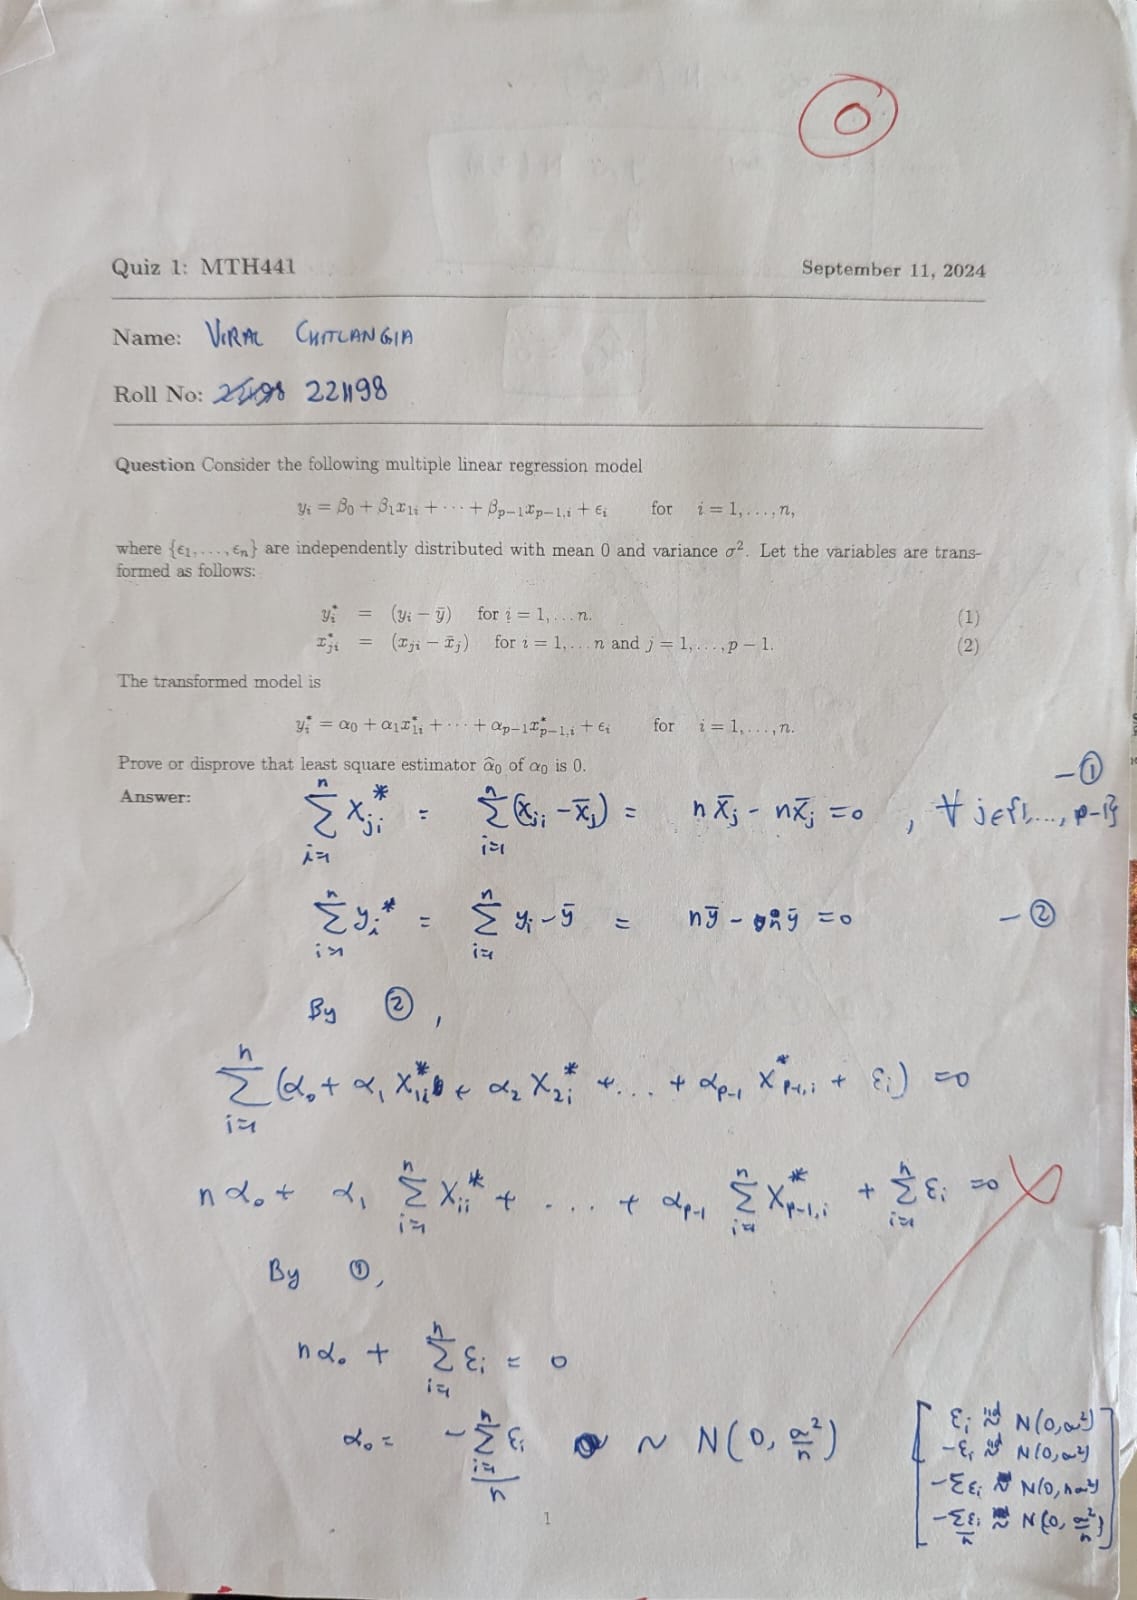 0
Quiz 1: MTH441 September 11, 2024
Name: VIRAL CHITLANGIA
Roll No: 221198
Question Consider the following multiple linear regression model
y_i = β_0 + β_1x_{1i} + ··· + β_{p−1}x_{p−1,i} + ε_i for i = 1, ..., n,
where {ε_1, ..., ε_n} are independently distributed with mean 0 and variance σ². Let the variables are trans-
formed as follows:
y_i^* = (y_i − ȳ) for i = 1, ... n. (1)
x_{ji}^* = (x_{ji} − x̄_j) for i = 1, ... n and j = 1, ..., p − 1. (2)
The transformed model is
y_i^* = α_0 + α_1x_{1i}^* + ··· + α_{p−1}x_{p−1,i}^* + ε_i for i = 1, ..., n.
Prove or disprove that least square estimator α̂_0 of α_0 is 0.
Answer:
∑_{i=1}^n X_{ji}^* = ∑_{i=1}^n (X_{ji} − X̄_j) = nX̄_j − nX̄_j = 0, ∀ j∈{1,..., p−1} — ①
∑_{i=1}^n y_i^* = ∑_{i=1}^n y_i − ȳ = nȳ − nȳ = 0 — ②
By ②,
∑_{i=1}^n (α_0 + α_1 X_{1i}^* + α_2 X_{2i}^* + ... + α_{p−1} X_{p−1,i}^* + ε_i) = 0
nα_0 + α_1 ∑_{i=1}^n X_{ii}^* + ... + α_{p−1} ∑_{i=1}^n X_{p−1,i}^* + ∑_{i=1}^n ε_i = 0
By ①,
nα_0 + ∑_{i=1}^n ε_i = 0
α_0 = −∑_{i=1}^n ε_i / n ~ N(0, σ²/n)
[ε_i iid~ N(0, σ²)
−ε_i iid~ N(0, σ²)
−∑ε_i ~ N(0, nσ²)
−∑ε_i / n ~ N(0, σ²/n)]
1